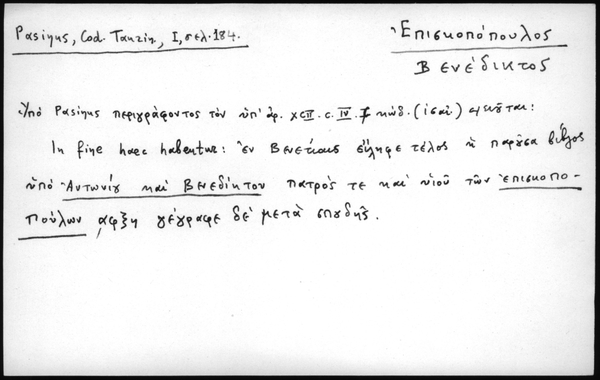 Pasinus, Cod. Taurin, I, σελ. 184.
Ἐπισκοπόπουλος
Βενέδικτος
Ὑπὸ Pasinus περιγράφοντος τὸν ὑπ' ἀρ. XCII. c. IV. κώδ.
In fine haec habentur: ἐν Βενετίαις εἴληφε τέλος ἡ παρȣ̃σα βίβλος
ὑπὸ Ἀντωνίȣ καὶ Βενεδίκτου πατρός τε καὶ υἱοῦ τῶν Ἐπισκοπο-
πούλων αφξη γέγραφε δὲ μετὰ σπȣδῆς.